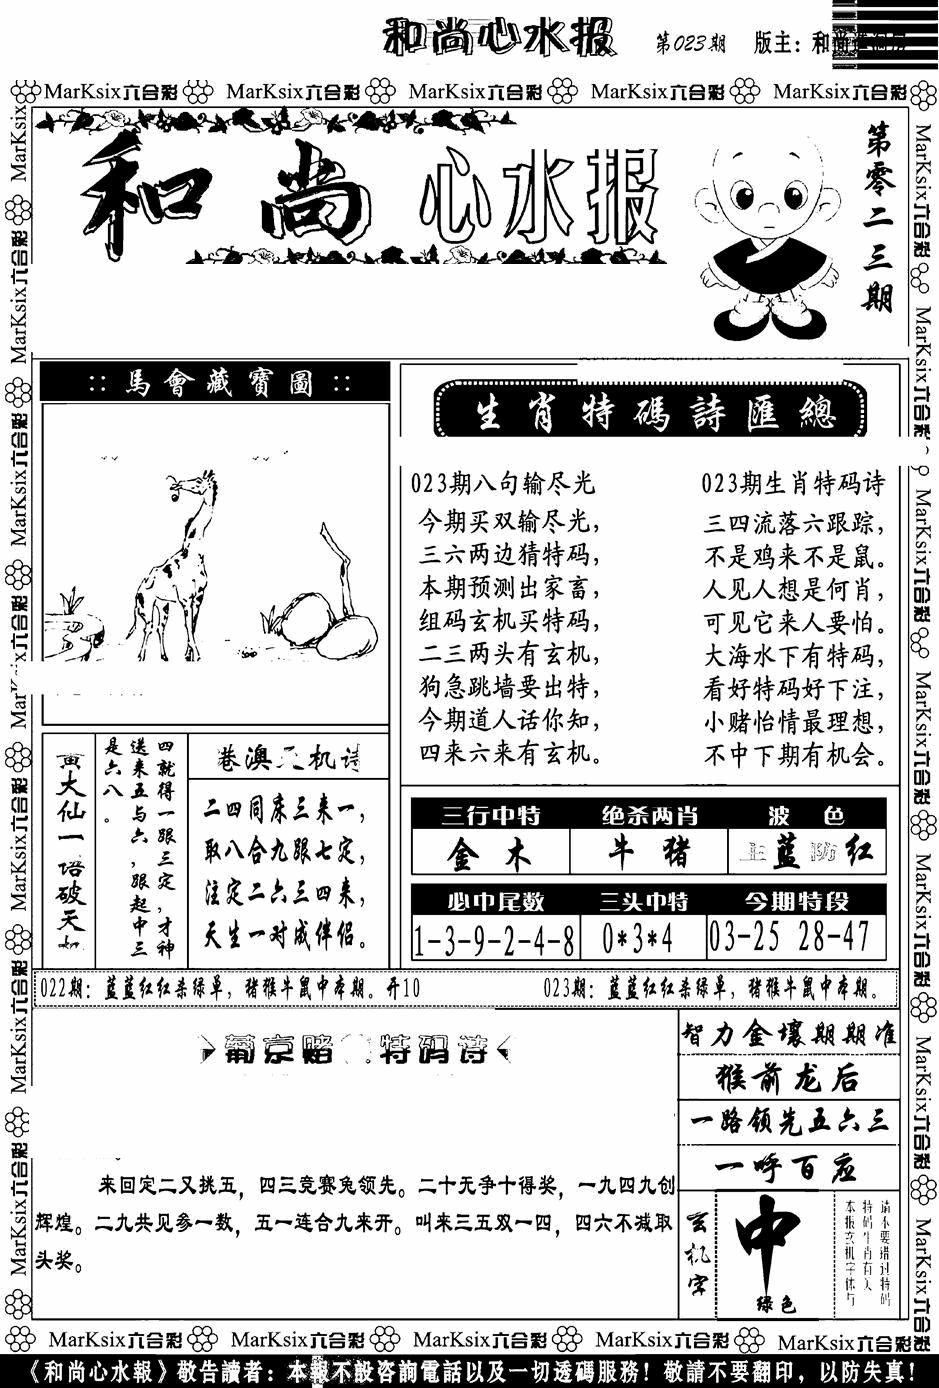 和尚心水报 第023期 版主：和尚
MarKsix六合彩 MarKsix六合彩 MarKsix六合彩 MarKsix六合彩 MarKsix六合彩
和尚心水报
第零二三期
::馬會藏寶圖::
生肖特码詩匯總
023期八句输尽光
今期买双输尽光，
三六两边猜特码，
本期预测出家畜，
组码玄机买特码，
二三两头有玄机，
狗急跳墙要出特，
今期道人话你知，
四来六来有玄机。
023期生肖特码诗
三四流落六跟踪，
不是鸡来不是鼠。
人见人想是何肖，
可见它来人要怕。
大海水下有特码，
看好特码好下注，
小赌怡情最理想，
不中下期有机会。
黄大仙一语破天
四就得一跟三定，才神
送来五与六，跟起中三
是六八。
港澳天机诗
二四同床三来一，
取八合九跟七定，
注定二六三四来，
天生一对成伴侣。
三行中特 绝杀两肖 波色
金木 牛猪 主蓝防红
必中尾数 三头中特 今期特段
1-3-9-2-4-8 0*3*4 03-25 28-47
022期：蓝蓝红红杀绿单，猪猴牛鼠中本期。开10
023期：蓝蓝红红杀绿单，猪猴牛鼠中本期。
葡京赌 特码诗
来回定二又挑五，四三竞赛兔领先。二十无争十得奖，一九四九创
辉煌。二九共见参一数，五一连合九来开。叫来三五双一四，四六不减取
头奖。
智力金壤期期准
猴前龙后
一路领先五六三
一呼百应
玄机字
中
绿色
请不要错过特码
特码生肖有关
本报玄机字体与
MarKsix六合彩 MarKsix六合彩 MarKsix六合彩 MarKsix六合彩 MarKsix六合彩
《和尚心水報》敬告讀者：本報不設咨詢電話以及一切透碼服務！敬請不要翻印，以防失真！